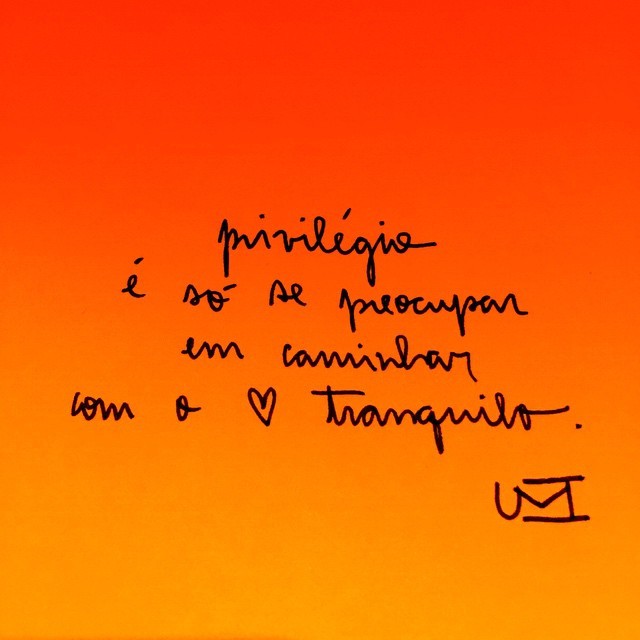 privilégio
é só se preocupar
em caminhar
com o ♡ tranquilo.